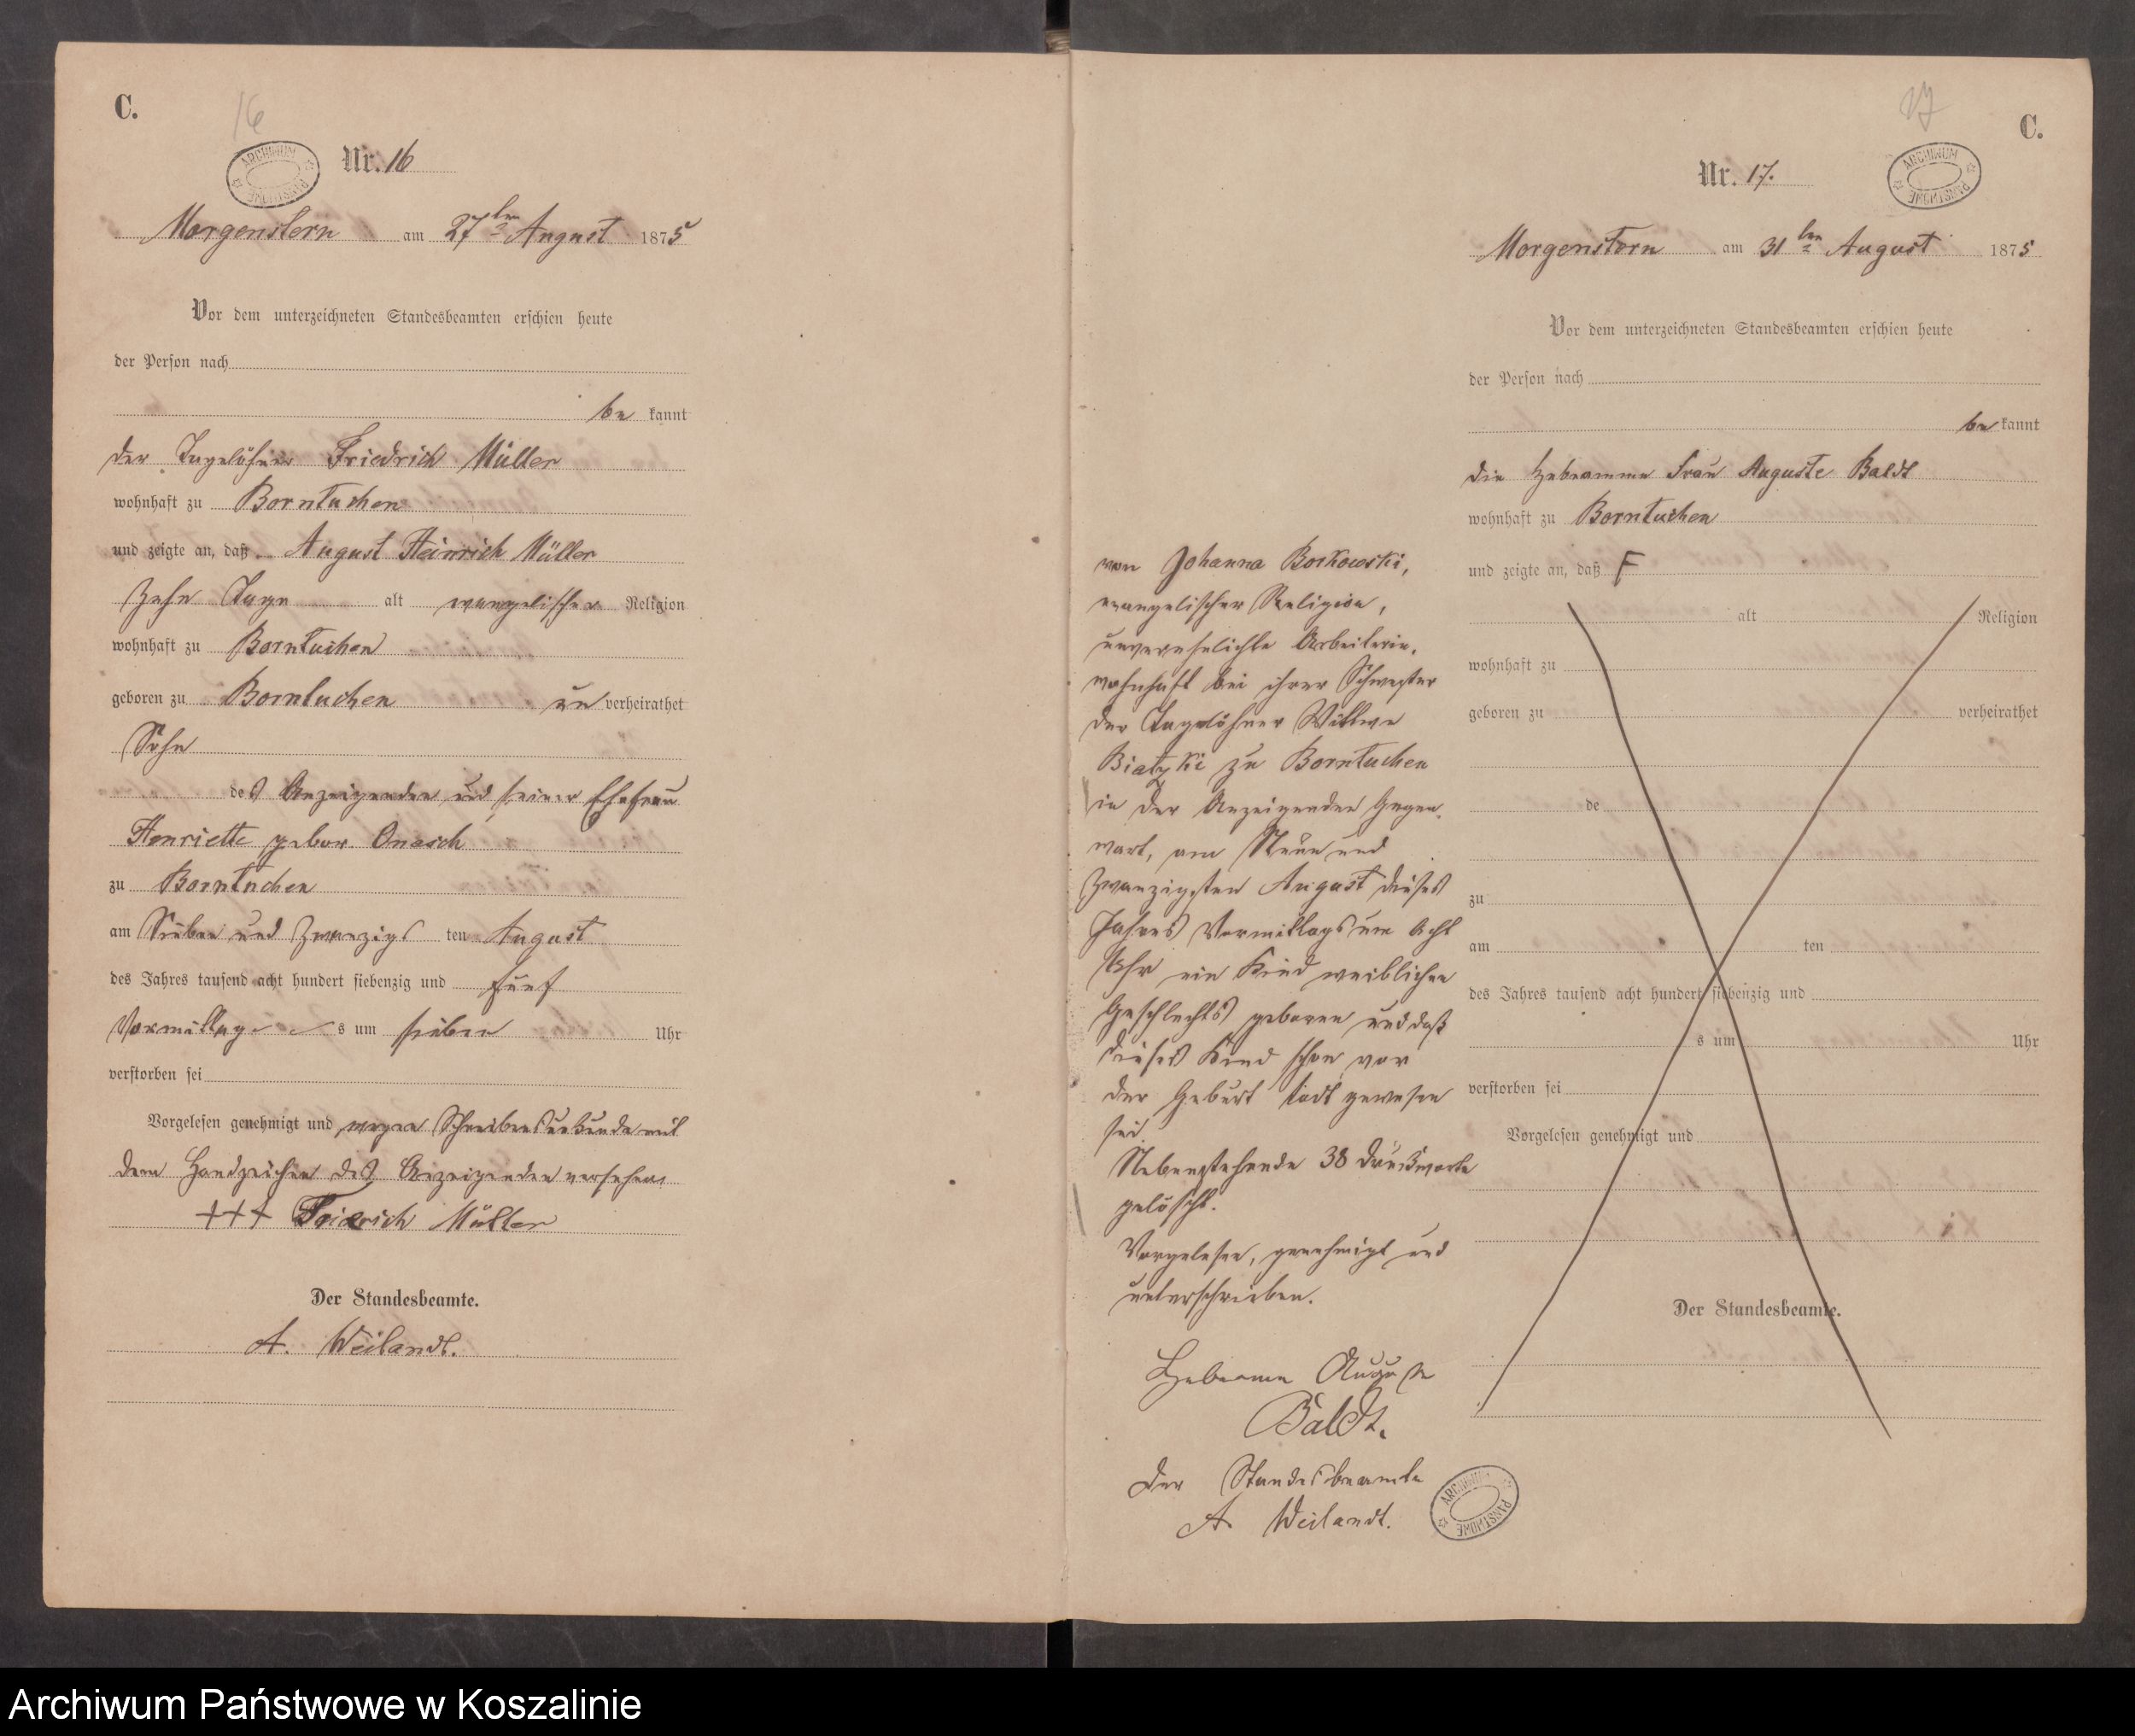 C.
16
ARCHIWUM PAŃSTWOWE
Nr. 16
Morgenstern am 27ten August 1875
Vor dem unterzeichneten Standesbeamten erschien heute
der Person nach
be kannt
der Tagelöhner Friedrich Müller
wohnhaft zu Borntuchen
und zeigte an, daß August Heinrich Müller
Zehn Tage alt evangelischer Religion
wohnhaft zu Borntuchen
geboren zu Borntuchen un verheirathet
Sohn
des Anzeigenden und seiner Ehefrau
Henriette gebor. Onasch
zu Borntuchen
am Sieben und Zwanzigs ten August
des Jahres tausend acht hundert siebenzig und fünf
Vormittag s um sieben Uhr
verstorben sei
Vorgelesen genehmigt und wegen Schreibensunkunde mit
dem Handzeichen des Anzeigenden versehen
+++ Friedrich Müller
Der Standesbeamte.
A. Weilandt.
17
C.
ARCHIWUM PAŃSTWOWE
Nr. 17.
Morgenstern am 31ten August 1875
Vor dem unterzeichneten Standesbeamten erschien heute
der Person nach
be kannt
die Hebeamme Frau Auguste Baldt
wohnhaft zu Borntuchen
und zeigte an, daß F
alt Religion
wohnhaft zu
geboren zu verheirathet
de
zu
am ten
des Jahres tausend acht hundert siebenzig und
s um Uhr
verstorben sei
Vorgelesen genehmigt und
Der Standesbeamte.
von Johanna Borkowski,
evangelischer Religion,
unverehelichte Arbeiterin,
wohnhaft bei ihrer Schwester
der Tagelöhner Wittwe
zu Borntuchen
in der Anzeigenden Gegen-
wart, am Neun und
Zwanzigsten August dieses
Jahres Vormittags um Acht
Uhr ein Kind weiblichen
Geschlechts geboren und daß
dieses Kind schon vor
der Geburt todt gewesen
sei.
Nebenstehende 38 Druckworte
gelöscht.
Vorgelesen, genehmigt und
unterschrieben.
Hebeamme Auguste
Baldt.
Der Standesbeamte
A. Weilandt.
ARCHIWUM PAŃSTWOWE
Archiwum Państwowe w Koszalinie